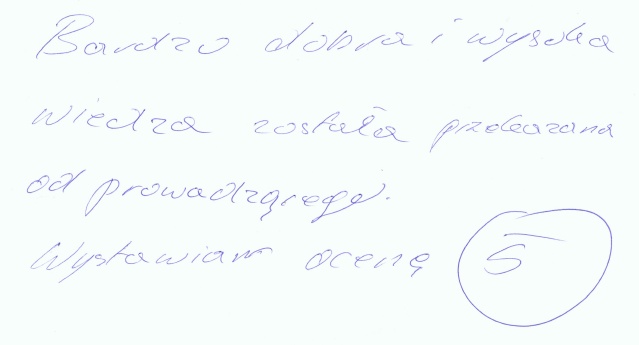 Bardzo dobra i wysoka
wiedza została przekazana
od prowadzącego.
Wystawiam ocenę 5